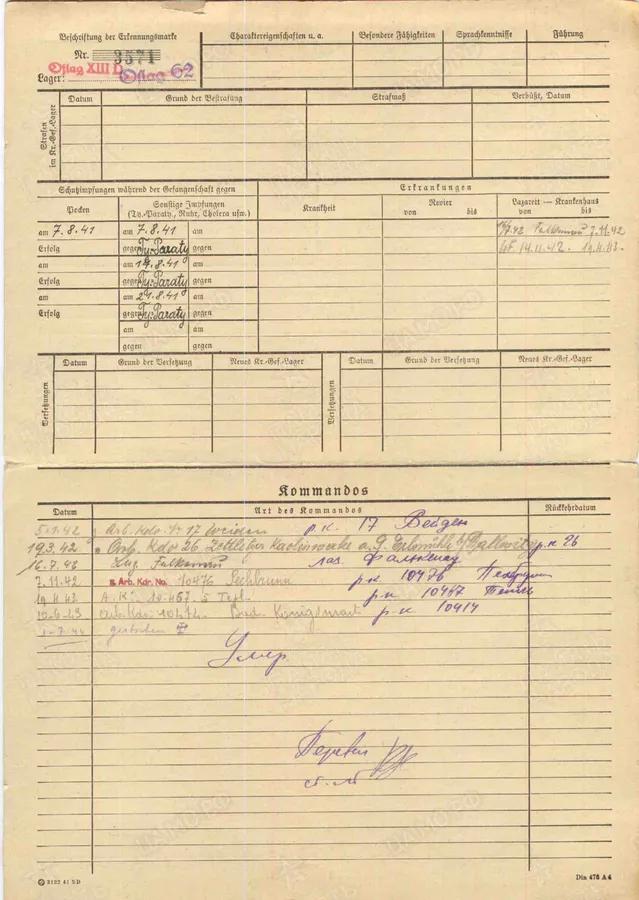 Beschriftung der Erkennungsmarke
Nr. 3571
Lager: Oflag XIII D Oflag 62
Charaktereigenschaften u. a.
Besondere Fähigkeiten
Sprachkenntnisse
Führung
Strafen im Kr.-Gef.-Lager
Datum
Grund der Bestrafung
Strafmaß
Verbüßt, Datum
Schutzimpfungen während der Gefangenschaft gegen
Erkrankungen
Pocken
Sonstige Impfungen
(Ty.-Paraty., Ruhr, Cholera usw.)
Krankheit
Revier
von bis
Lazarett — Krankenhaus
von bis
am 7.8.41 am 7.8.41 am
7.11.42
Erfolg gegen Ty. Paraty gegen
14.11.42 - 19.4.43.
am am 14.8.41 am
Erfolg gegen Ty. Paraty gegen
am am 21.8.41 am
Erfolg gegen Ty. Paraty gegen
am am
gegen gegen
Versetzungen
Datum
Grund der Versetzung
Neues Kr.-Gef.-Lager
Versetzungen
Datum
Grund der Versetzung
Neues Kr.-Gef.-Lager
Kommandos
Datum
Art des Kommandos
Rückkehrdatum
5.1.42 Arb. Kdo. 17 Weiden р.к. 17 Вейден
19.3.42 Kdo 26 р.к 26
16.7.42 Laz. Falkenau лаз. Фалькенау
7.11.42 Arb. Kdr. No. 10476 р-к 10476
19.4.43 A.K. 10467 р-к 10467
Arb. Kdo. Bad Königswart р-к 10414
gestorben
Умер
Перевел
3122 41 5D
Din 476 A 4